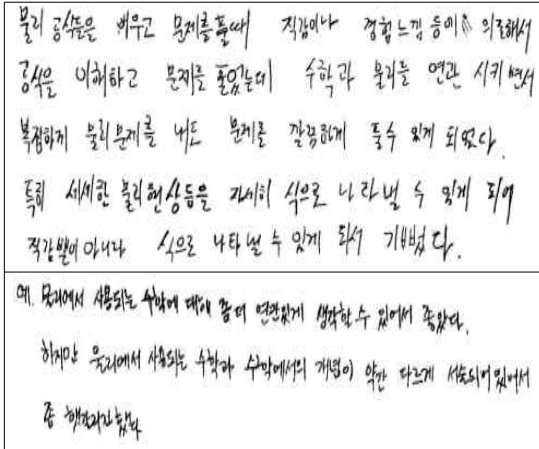 물리 공식들을 배우고 문제를 풀때 직감이나 경험 느낌 등에 의존해서
공식을 이해하고 문제를 풀었는데 수학과 물리를 연관 시키면서
복잡하게 물리문제를 내도 문제를 깔끔하게 풀수 있게 되었다.
특히 세세한 물리현상등을 자세히 식으로 나타낼 수 있게 되어
직감뿐이 아니라 식으로 나타낼 수 있게 되서 기뻤다.
예. 물리에서 사용되는 수학에 대해 좀더 연관있게 생각할 수 있어서 좋았다.
하지만 물리에서 사용되는 수학과 수학에서의 개념이 약간 다르게 서술되어있어서
좀 헷갈리긴했다